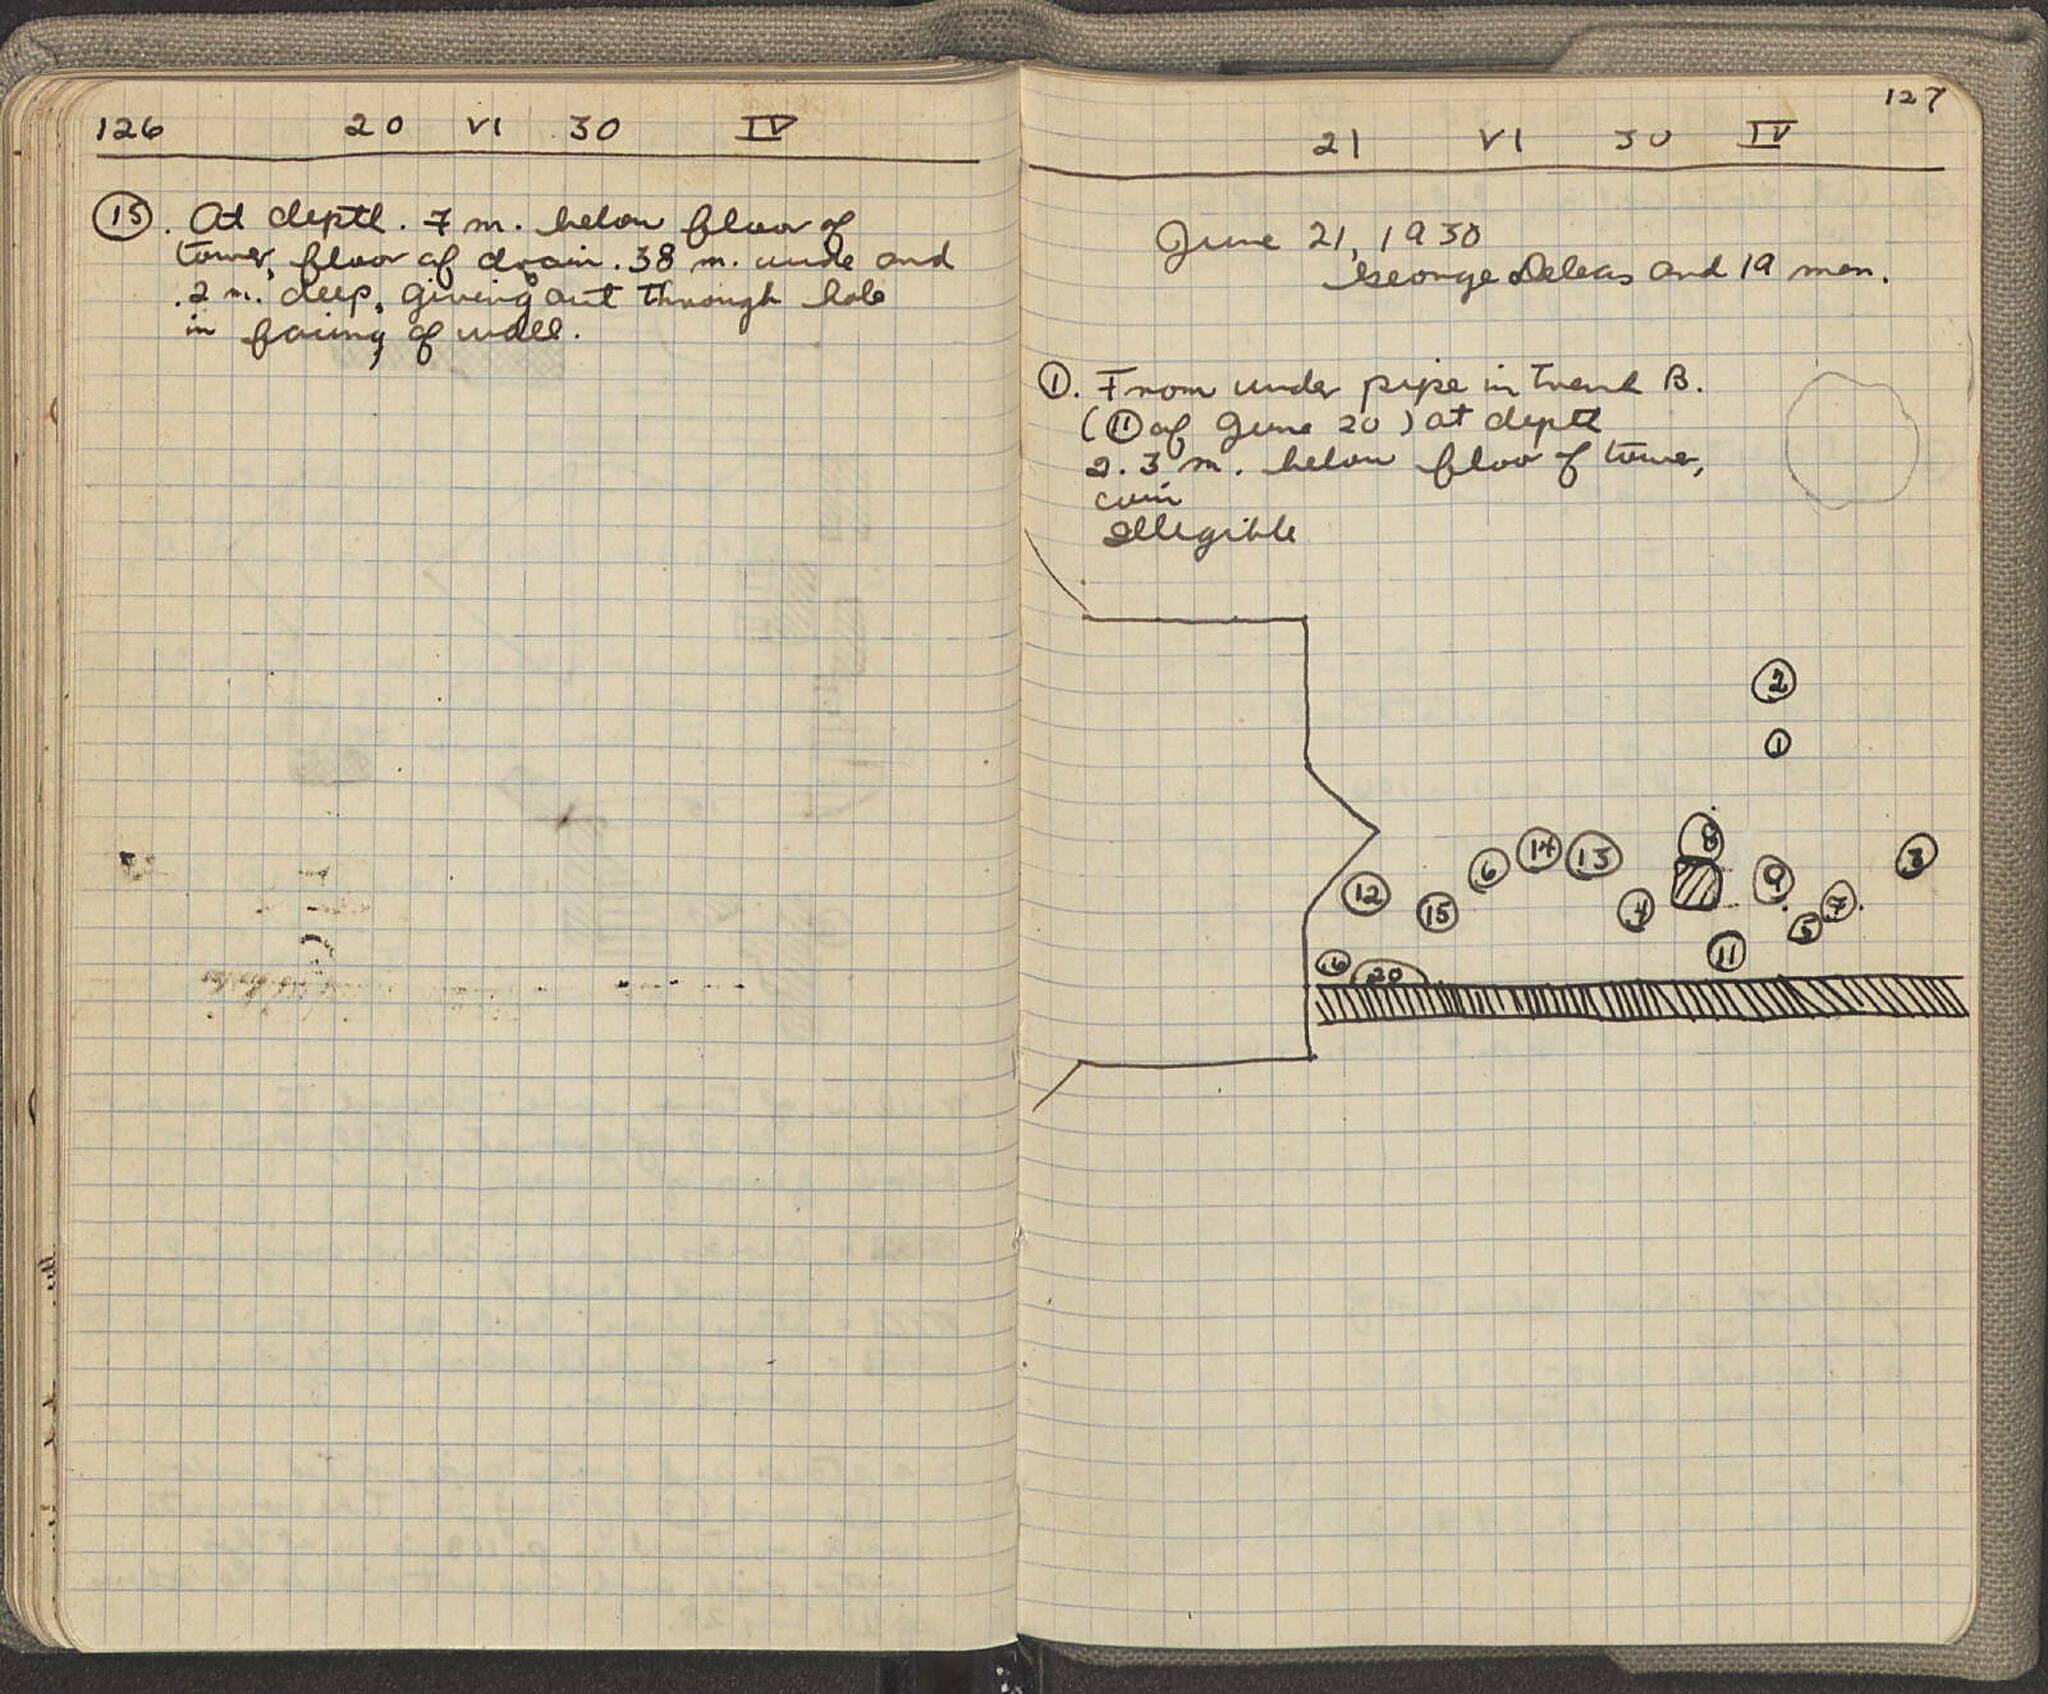 126 20 VI 30 IV
(15). At depth .7 m. below floor of
tower, floor of drain .38 m. wide and
.2 m. deep, giving out through hole
in facing of wall.
127
21 VI 30 IV
June 21, 1930
George Deleas and 19 men.
(1). From under pipe in trench B.
((11) of June 20) at depth
2.3 m. below floor of tower,
coin
Illegible
2
1
8
14 13
3
6
9
12
7
4
15
5
11
20